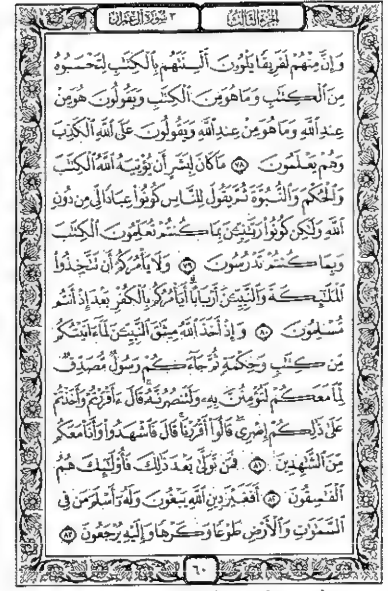 الجزء الثالث ٣ سورة آل عمران
وَإِنَّ مِنْهُمْ لَفَرِيقًا يَلْوُۥنَ أَلْسِنَتَهُم بِالْكِتَٰبِ لِتَحْسَبُوهُ
مِنَ ٱلْكِتَٰبِ وَمَا هُوَ مِنَ ٱلْكِتَٰبِ وَيَقُولُونَ هُوَ مِنْ
عِندِ ٱللَّهِ وَمَا هُوَ مِنْ عِندِ ٱللَّهِ وَيَقُولُونَ عَلَى ٱللَّهِ ٱلْكَذِبَ
وَهُمْ يَعْلَمُونَ ٧٨ مَا كَانَ لِبَشَرٍ أَن يُؤْتِيَهُ ٱللَّهُ ٱلْكِتَٰبَ
وَٱلْحُكْمَ وَٱلنُّبُوَّةَ ثُمَّ يَقُولَ لِلنَّاسِ كُونُوا۟ عِبَادًا لِّى مِن دُونِ
ٱللَّهِ وَلَٰكِن كُونُوا۟ رَبَّٰنِيِّـۧنَ بِمَا كُنتُمْ تُعَلِّمُونَ ٱلْكِتَٰبَ
وَبِمَا كُنتُمْ تَدْرُسُونَ ٧٩ وَلَا يَأْمُرَكُمْ أَن تَتَّخِذُوا۟
ٱلْمَلَٰٓئِكَةَ وَٱلنَّبِيِّـۧنَ أَرْبَابًا أَيَأْمُرُكُم بِٱلْكُفْرِ بَعْدَ إِذْ أَنتُم
مُّسْلِمُونَ ٨٠ وَإِذْ أَخَذَ ٱللَّهُ مِيثَٰقَ ٱلنَّبِيِّـۧنَ لَمَآ ءَاتَيْتُكُم
مِّن كِتَٰبٍ وَحِكْمَةٍ ثُمَّ جَآءَكُمْ رَسُولٌ مُّصَدِّقٌ
لِّمَا مَعَكُمْ لَتُؤْمِنُنَّ بِهِۦ وَلَتَنصُرُنَّهُۥ قَالَ ءَأَقْرَرْتُمْ وَأَخَذْتُمْ
عَلَىٰ ذَٰلِكُمْ إِصْرِى قَالُوٓا۟ أَقْرَرْنَا قَالَ فَٱشْهَدُوا۟ وَأَنَا۠ مَعَكُم
مِّنَ ٱلشَّٰهِدِينَ ٨١ فَمَن تَوَلَّىٰ بَعْدَ ذَٰلِكَ فَأُو۟لَٰٓئِكَ هُمُ
ٱلْفَٰسِقُونَ ٨٢ أَفَغَيْرَ دِينِ ٱللَّهِ يَبْغُونَ وَلَهُۥٓ أَسْلَمَ مَن فِى
ٱلسَّمَٰوَٰتِ وَٱلْأَرْضِ طَوْعًا وَكَرْهًا وَإِلَيْهِ يُرْجَعُونَ ٨٣
٦٠